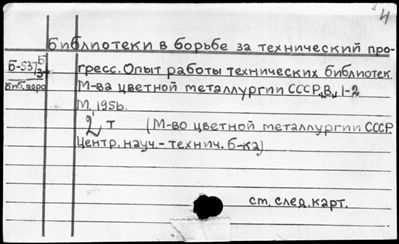 Библиотеки в борьбе за технический про-
гресс. Опыт работы технических библиотек
М-ва цветной металлургии СССР, В. 1-2
М, 1956.
2 т (М-во цветной металлургии СССР.
Центр. науч.-технич. б-ка)
см. след. карт.